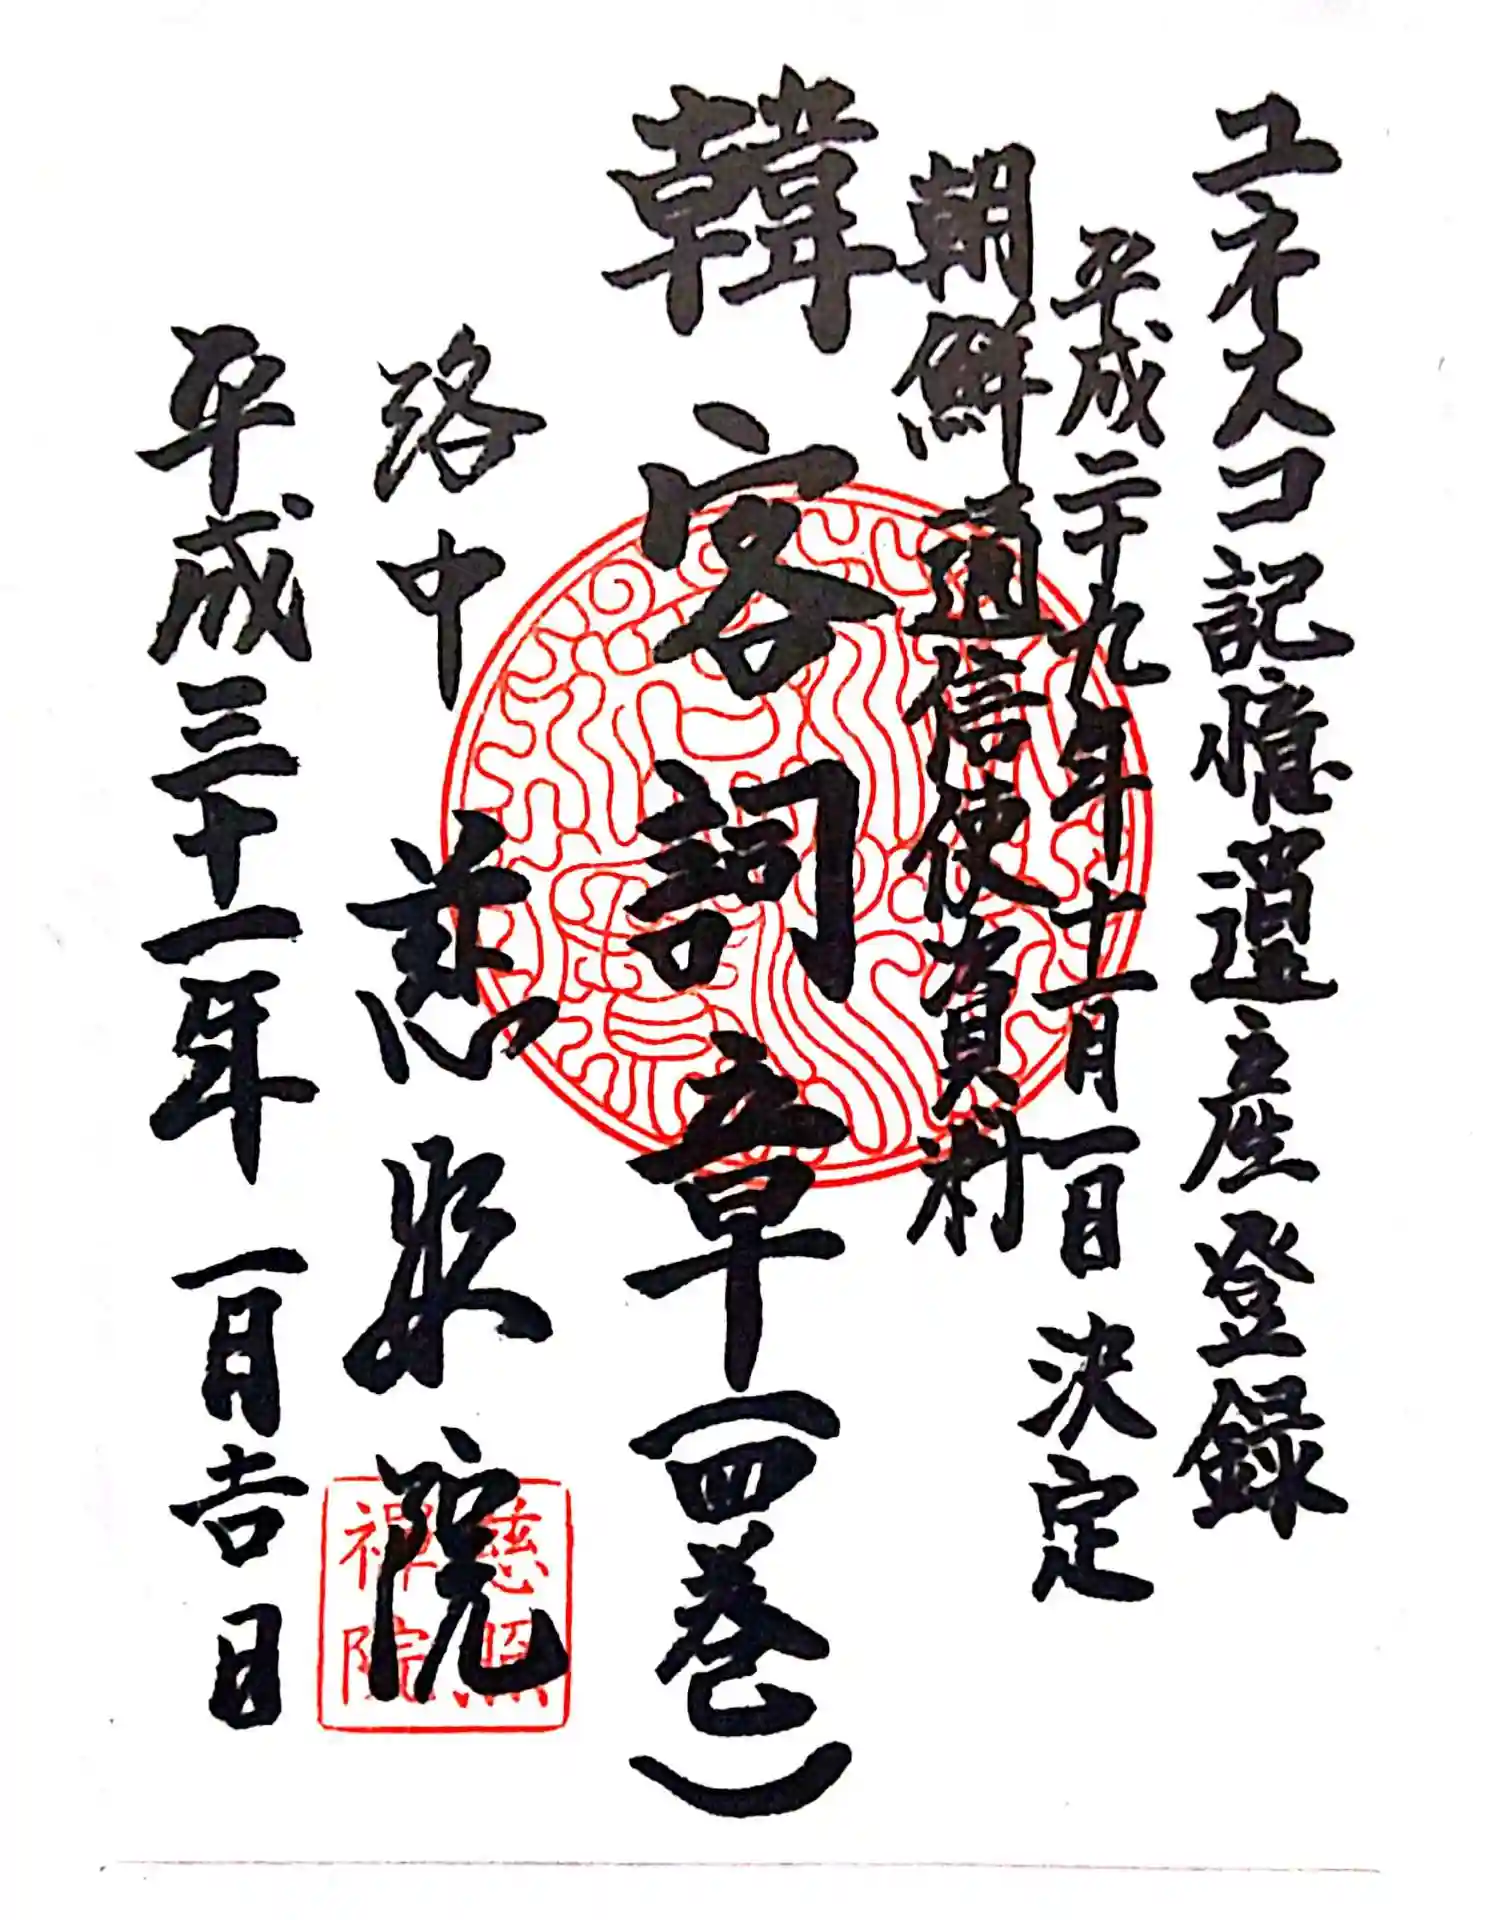 ユネスコ記憶遺産登録
平成二十九年十月三一日決定
朝鮮通信使資料
韓客詞章(四巻)
洛中 慈照院
平成三十一年 一月吉日
慈照
禅院